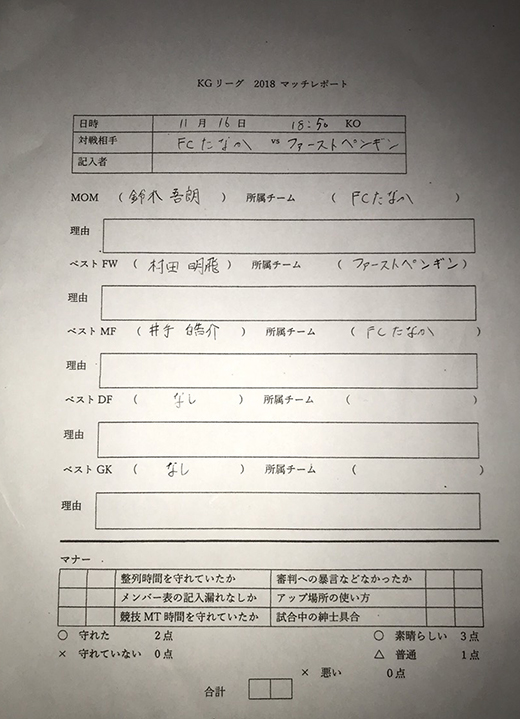 KGリーグ 2018 マッチレポート
日時 11月 16日 18:50 KO
対戦相手 FCたなか vs ファーストペンギン
記入者
MOM ( 鈴木 吾朗 ) 所属チーム ( FCたなか )
理由
ベストFW ( 村田 明飛 ) 所属チーム ( ファーストペンギン )
理由
ベストMF ( 井手 皓介 ) 所属チーム ( FCたなか )
理由
ベストDF ( なし ) 所属チーム ( )
理由
ベストGK ( なし ) 所属チーム ( )
理由
マナー
整列時間を守れていたか 審判への暴言などなかったか
メンバー表の記入漏れなしか アップ場所の使い方
競技MT時間を守れていたか 試合中の紳士具合
○ 守れた 2点 ○ 素晴らしい 3点
× 守れていない 0点 △ 普通 1点
× 悪い 0点
合計